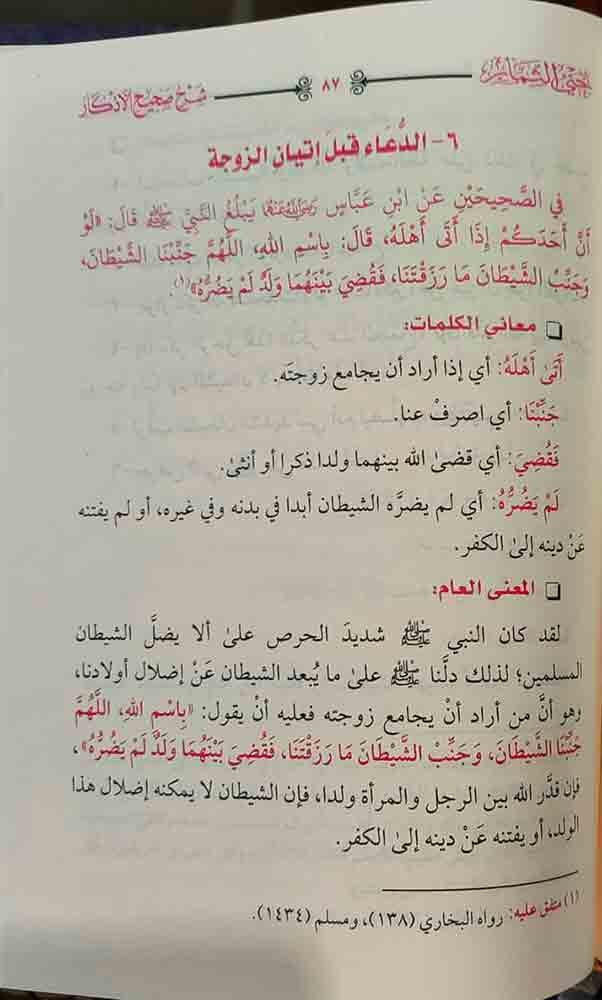 جنى الثمار ٨٧ شرح صحيح الأذكار
٦- الدُّعَاء قبلَ إتيان الزوجةِ
في الصَّحِيحَيْنِ عَنْ ابْنِ عَبَّاسٍ رَضِيَ اللَّهُ عَنْهُمَا يَبْلُغُ النَّبِيَّ ﷺ قَالَ: «لَوْ
أَنَّ أَحَدَكُمْ إِذَا أَتَى أَهْلَهُ، قَالَ: بِاسْمِ اللهِ، اللَّهُمَّ جَنِّبْنَا الشَّيْطَانَ،
وَجَنِّبْ الشَّيْطَانَ مَا رَزَقْتَنَا، فَقُضِيَ بَيْنَهُمَا وَلَدٌ لَمْ يَضُرَّهُ»(١).
❑ معاني الكلمات:
أَتَى أَهْلَهُ: أي إذا أراد أن يجامع زوجتَه.
جَنِّبْنَا: أي اصرفْ عنا.
فَقُضِيَ: أي قضىٰ الله بينهما ولدا ذكرا أو أنثىٰ.
لَمْ يَضُرَّهُ: أي لم يضرَّه الشيطان أبدا في بدنه وفي غيره، أو لم يفتنه
عَنْ دينه إلىٰ الكفر.
❑ المعنى العام:
لقد كان النبي ﷺ شديدَ الحرص علىٰ ألا يضلَّ الشيطان
المسلمين؛ لذلك دلَّنا ﷺ علىٰ ما يُبعد الشيطان عَنْ إضلال أولادنا،
وهو أنَّ من أراد أنْ يجامع زوجته فعليه أنْ يقول: «بِاسْمِ اللهِ، اللَّهُمَّ
جَنِّبْنَا الشَّيْطَانَ، وَجَنِّبْ الشَّيْطَانَ مَا رَزَقْتَنَا، فَقُضِيَ بَيْنَهُمَا وَلَدٌ لَمْ يَضُرَّهُ»،
فإن قدَّر الله بين الرجل والمرأة ولدا، فإن الشيطان لا يمكنه إضلال هذا
الولد، أو يفتنه عَنْ دينه إلىٰ الكفر.
(١) متفق عليه: رواه البخاري (١٣٨)، ومسلم (١٤٣٤).